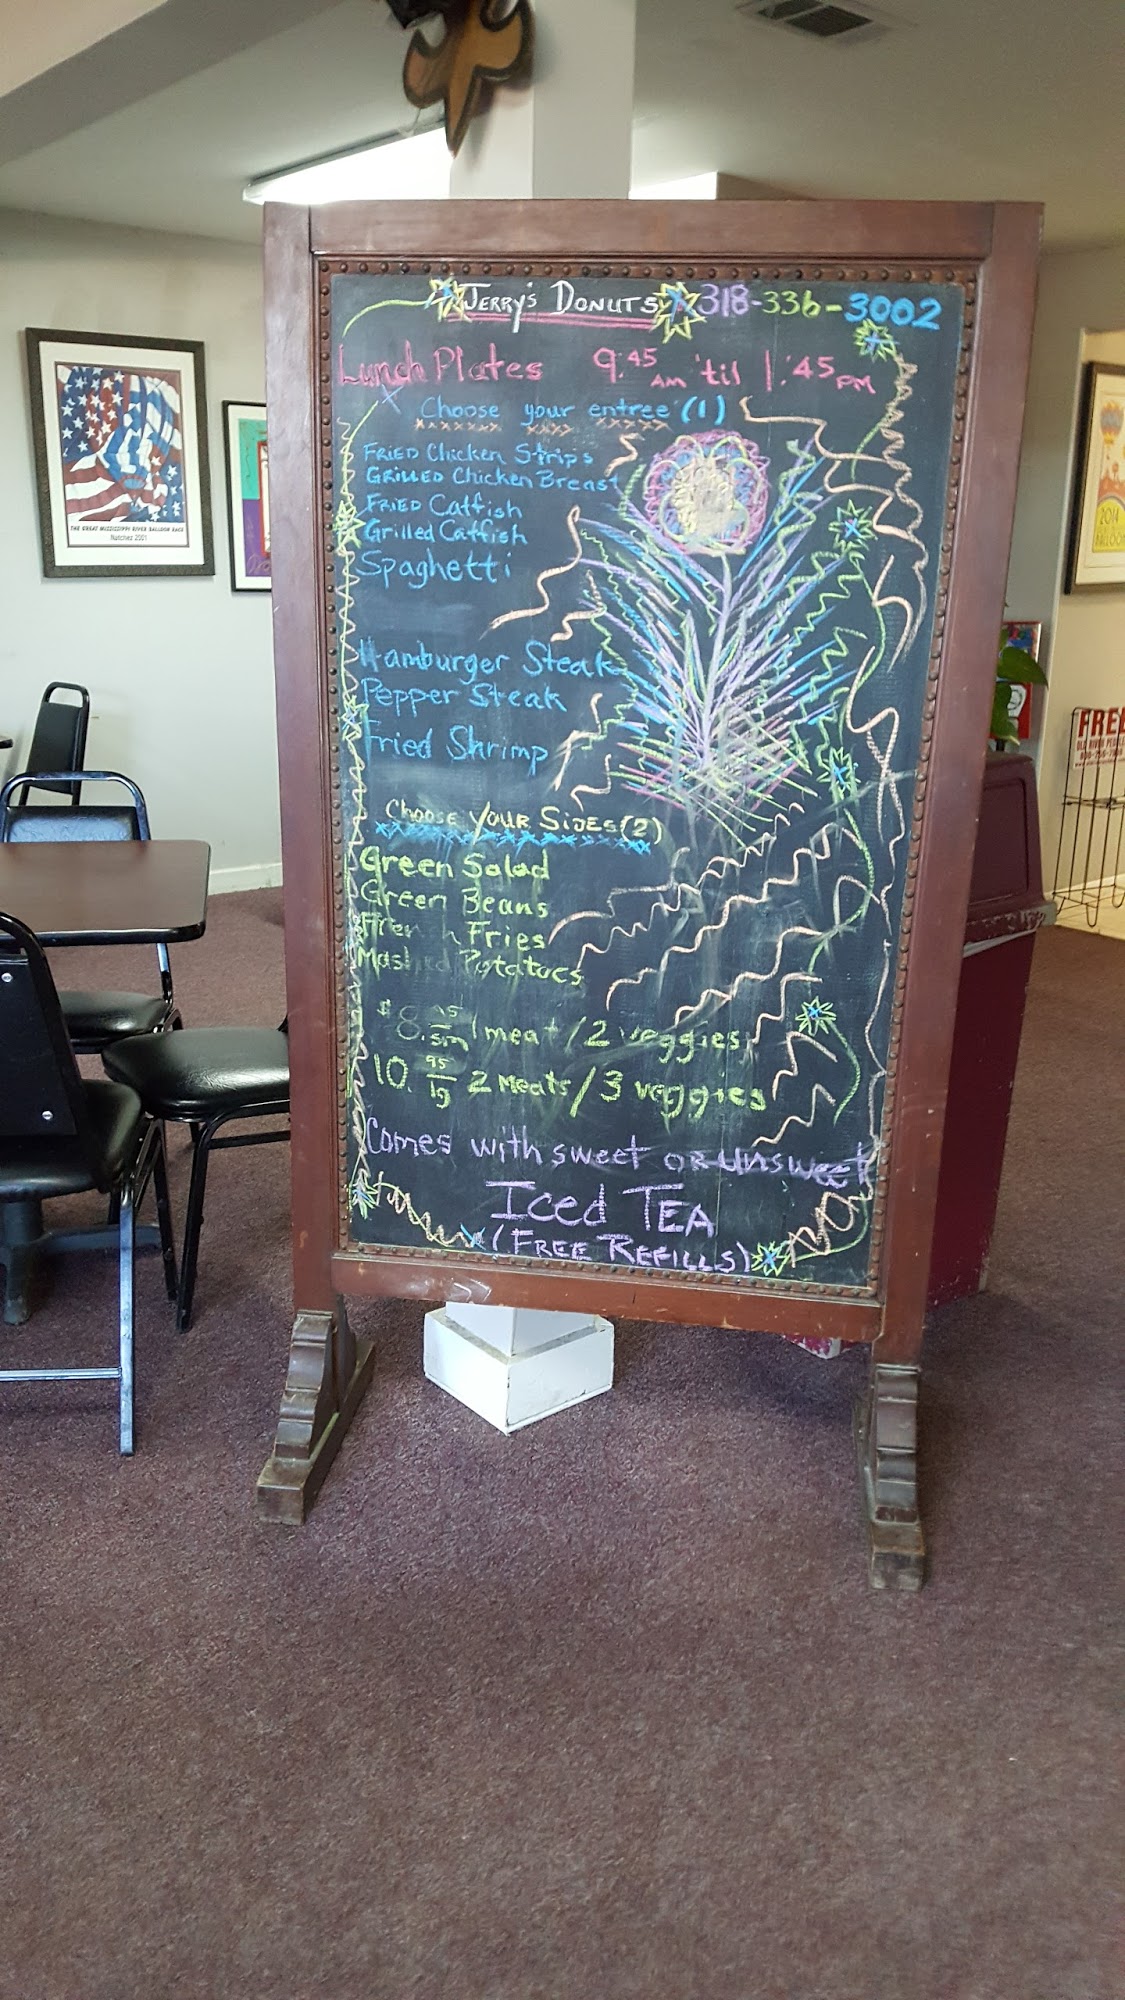 JERRY'S DONUTS 318-336-3002
Lunch Plates 9:45 AM 'til 1:45 PM
Choose your entree (1)
FRIED Chicken Strips
GRILLED Chicken Breast
FRIED Catfish
Grilled Catfish
Spaghetti
Hamburger Steak
Pepper Steak
Fried Shrimp
Choose YOUR SIDES (2)
Green Salad
Green Beans
French Fries
Mashed Potatoes
$8.95 sm 1 meat / 2 veggies
10.95 lg 2 Meats / 3 veggies
Comes with sweet OR Unsweet
Iced TEA
(FREE REFILLS)
THE GREAT MISSISSIPPI RIVER BALLOON RACE
Natchez 2001
2014
BALLOON
FREE